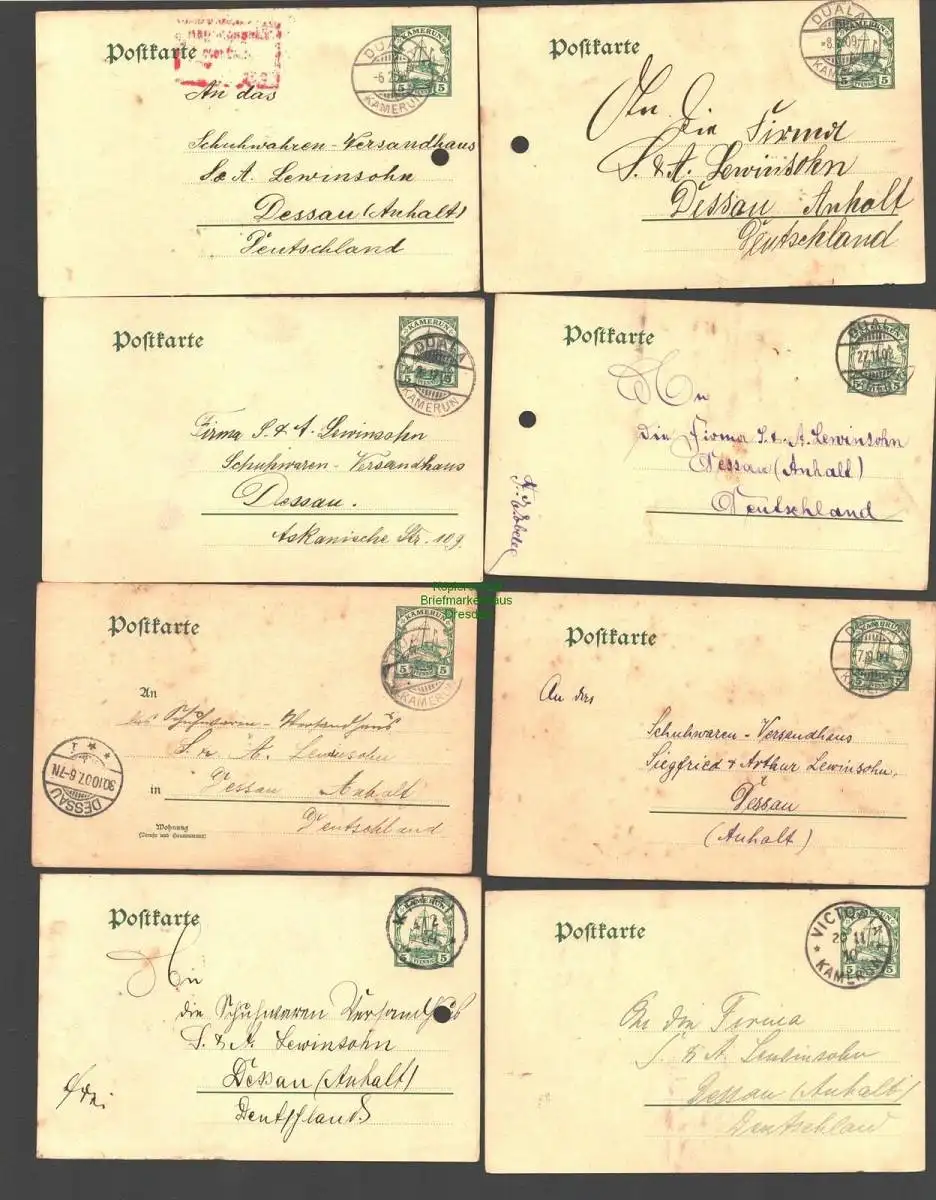 Postkarte
KAMERUN
5 5
DUALA
KAMERUN
An das
Schuhwahren-Versandhaus
S. & A. Lewinsohn
Dessau (Anhalt)
Deutschland
Postkarte
KAMERUN
5 5
PFENNIG
DUALA
-8.2.09
KAMERUN
An Die
Die Firma
S. & A. Lewinsohn
Dessau Anhalt
Deutschland
Postkarte
KAMERUN
5 5
DUALA
KAMERUN
Firma S. & A. Lewinsohn
Schuhwaren-Versandhaus
Dessau.
Askanische Str. 109.
Postkarte
DUALA
27.11.09
5 5
An
Die Firma S. & A. Lewinsohn
Dessau (Anhalt)
Deutschland
Kopierschutz
Briefmarkenhaus
Dresden
Postkarte
KAMERUN
5 5
KAMERUN
An
das Schuhwaren-Versandhaus
S. u. A. Lewinsohn
in Dessau Anhalt
Deutschland
Wohnung
(Straße und Hausnummer)
DESSAU
30.10.07.6-7N
* * 1
Postkarte
KAMERUN
DUALA
KAMERUN
An das
Schuhwaren-Versandhaus
Siegfried & Arthur Lewinsohn,
Dessau
(Anhalt)
Postkarte
KAMERUN
5 5
PFENNIG
An
die Schuhwaren Versandhaus
S. & A. Lewinsohn
Dessau (Anhalt)
Deutschland
Postkarte
5 5
VICTORIA
KAMERUN
An die Firma
S. & A. Lewinsohn
Dessau (Anhalt)
Deutschland